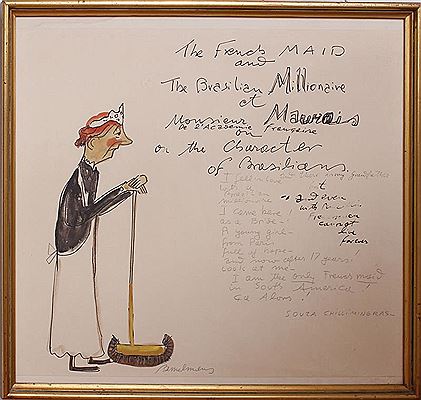 The French MAID
and
The Brasilian Millionaire
at
Monsieur Maurois
de l'Academie Française
or
on the Character
of Brasilians.
I fell in love
with a
millionaire
I came here!
as a Bride!
A young girl -
from Paris
full of hope -
and now after 17 years!
Look at me -
I am the only French maid
in South America!
it
and even
forever
SOUZA CHILLIMINGRAS -
Bemelmans